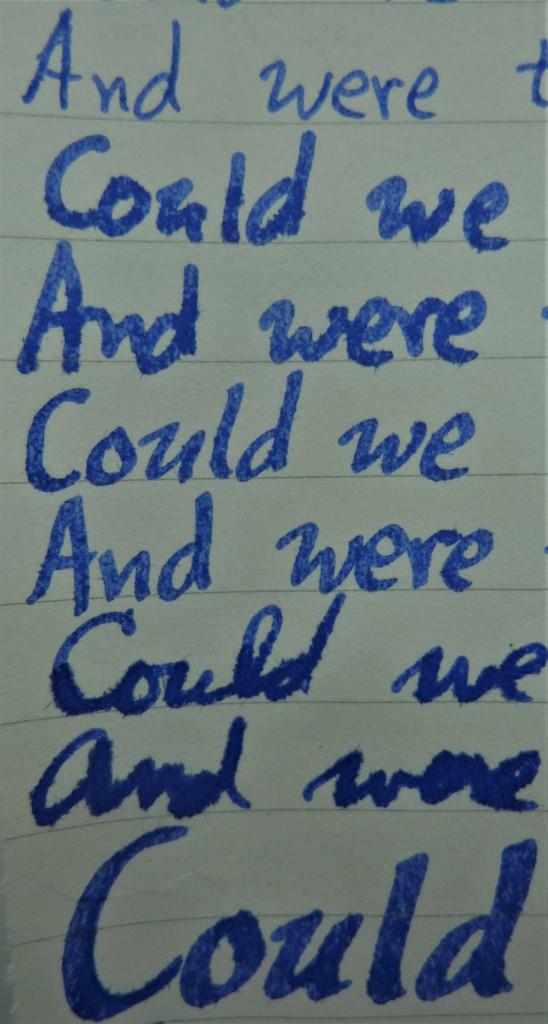 And were t
Could we
And were
Could we
And were
Could we
and were
Could